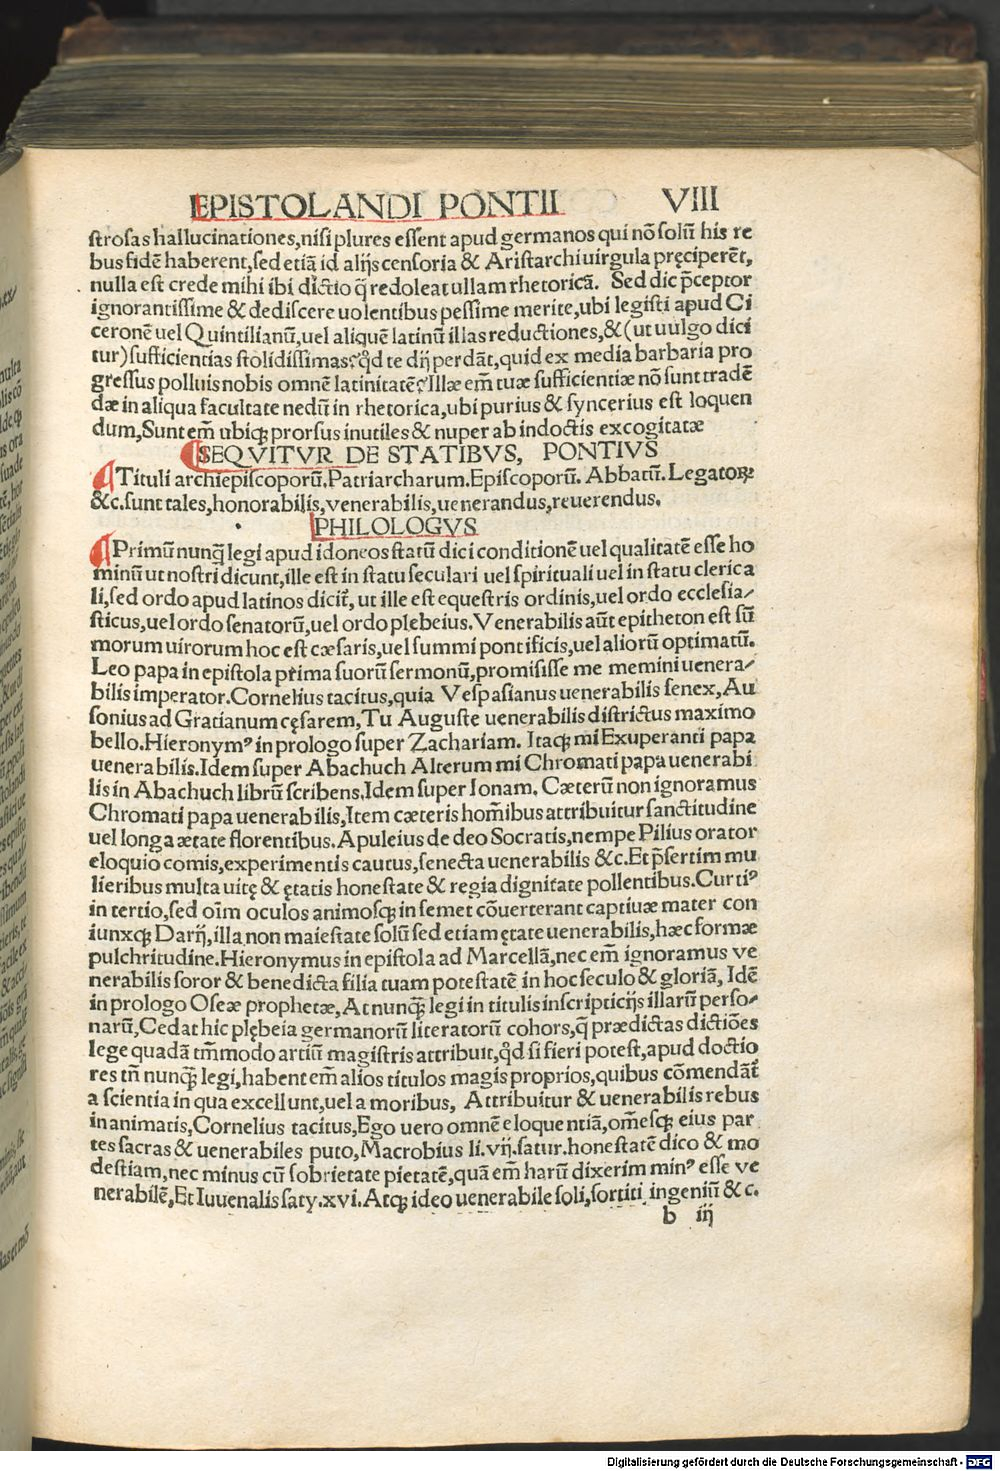 EPISTOLANDI PONTII VIII
strosas hallucinationes,nisi plures essent apud germanos qui nõ solũ his re
bus fidẽ haberent,sed etiã id alijs censoria & Aristarchi uirgula pręciperẽt,
nulla est crede mihi ibi dictio q̃ redoleat ullam rhetoricã. Sed dic p̃ceptor
ignorantissime & dediscere uolentibus pessime merite,ubi legisti apud Ci
ceronẽ uel Quintilianũ,uel aliquẽ latinũ illas reductiones,&(ut uulgo dici
tur)sufficientias stolidissimas?qd̃ te dij perdãt,quid ex media barbaria pro
gressus polluis nobis omnẽ latinitatẽ?Illæ em̃ tuæ sufficientiæ nõ sunt tradẽ
dæ in aliqua facultate nedũ in rhetorica,ubi purius & syncerius est loquen
dum,Sunt em̃ ubiqꝫ prorsus inutiles & nuper ab indoctis excogitatæ
SEQVITVR DE STATIBVS, PONTIVS
Tituli archiepiscoporũ.Patriarcharum.Episcoporũ. Abbatũ.Legatoꝝ
&c.sunt tales,honorabilis,venerabilis,uenerandus,reuerendus.
PHILOLOGVS
Primũ nunq̃ legi apud idoneos statũ dici conditionẽ uel qualitatẽ esse ho
minũ ut nostri dicunt,ille est in statu seculari uel spirituali uel in statu clerica
li,sed ordo apud latinos dicit̃, ut ille est equestris ordinis,uel ordo ecclesia/
sticus,uel ordo senatorũ,uel ordo plebeius.Venerabilis aũt epitheton est sũ
morum uirorum hoc est cæsaris,uel summi pontificis,uel aliorũ optimatũ.
Leo papa in epistola prima suorũ sermonũ,promisisse me memini uenera/
bilis imperator.Cornelius tacitus,quia Vespasianus uenerabilis senex,Au
sonius ad Gratianum cęsarem,Tu Auguste uenerabilis districtus maximo
bello.Hieronymꝰ in prologo super Zachariam. Itaqꝫ mi Exuperanti papa
uenerabilis.Idem super Abachuch Alterum mi Chromati papa uenerabi
lis in Abachuch librũ scribens.Idem super Ionam. Cæterũ non ignoramus
Chromati papa uenerabilis,Item cæteris hom̃ibus attribuitur sanctitudine
uel longa ætate florentibus.Apuleius de deo Socratis,nempe Pilius orator
eloquio comis,experimentis cautus,senecta uenerabilis &c.Et p̃sertim mu
lieribus multa uitę & ętatis honestate & regia dignitate pollentibus.Curtiꝰ
in tertio,sed oĩm oculos animosqꝫ in semet cõuerterant captiuæ mater con
iunxqꝫ Darij,illa non maiestate solũ sed etiam ętate uenerabilis,hæc formæ
pulchritudine.Hieronymus in epistola ad Marcellã,nec em̃ ignoramus ve
nerabilis soror & benedicta filia tuam potestatẽ in hoc seculo & gloriã, Idẽ
in prologo Oseæ prophetæ,At nunq̃ legi in titulis inscripticijs illarũ perso/
narũ,Cedat hic plębeia germanorũ literatorũ cohors,q̃ prædictas dictiões
lege quadã tm̃modo artiũ magistris attribuit,qd̃ si fieri potest,apud doctio
res tñ nunq̃ legi,habent em̃ alios titulos magis proprios,quibus cõmendãt̃
a scientia in qua excellunt,uel a moribus, Attribuitur & uenerabilis rebus
inanimatis,Cornelius tacitus,Ego uero omnẽ eloquentiã,om̃esqꝫ eius par
tes sacras & uenerabiles puto,Macrobius li.vij.satur.honestatẽ dico & mo
destiam,nec minus cũ sobrietate pietatẽ,quã em̃ harũ dixerim minꝰ esse ve
nerabilẽ,Et Iuuenalis saty.xvi.Atqꝫ ideo uenerabile soli,sortiti ingeniũ & c.
b iij
Digitalisierung gefördert durch die Deutsche Forschungsgemeinschaft - DFG